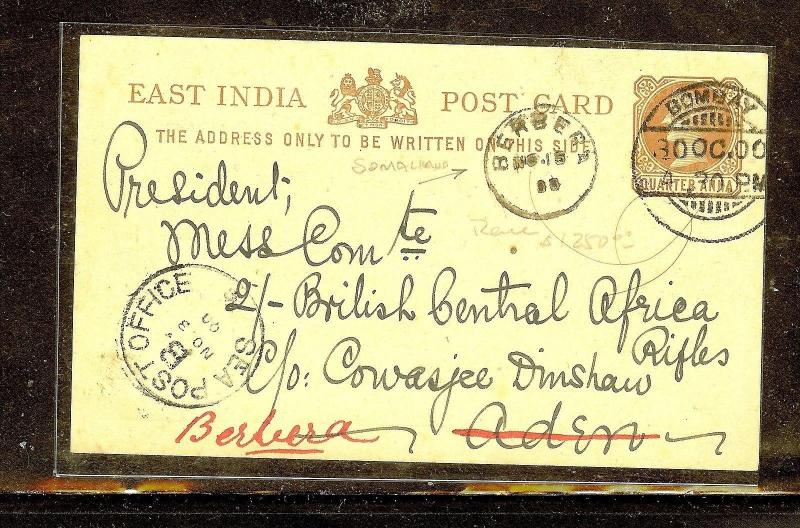 EAST INDIA POST CARD
THE ADDRESS ONLY TO BE WRITTEN ON THIS SIDE
QUARTER ANNA
BOMBAY
30 OC. 00
4-30 PM
BERBERA
NO. 15
SOMALILAND
Rare
$1250
President,
Mess Comte
2/- British Central Africa
Rifles
C/o: Cowasjee Dinshaw
Aden
Berbera
SEA POST OFFICE
B
NO